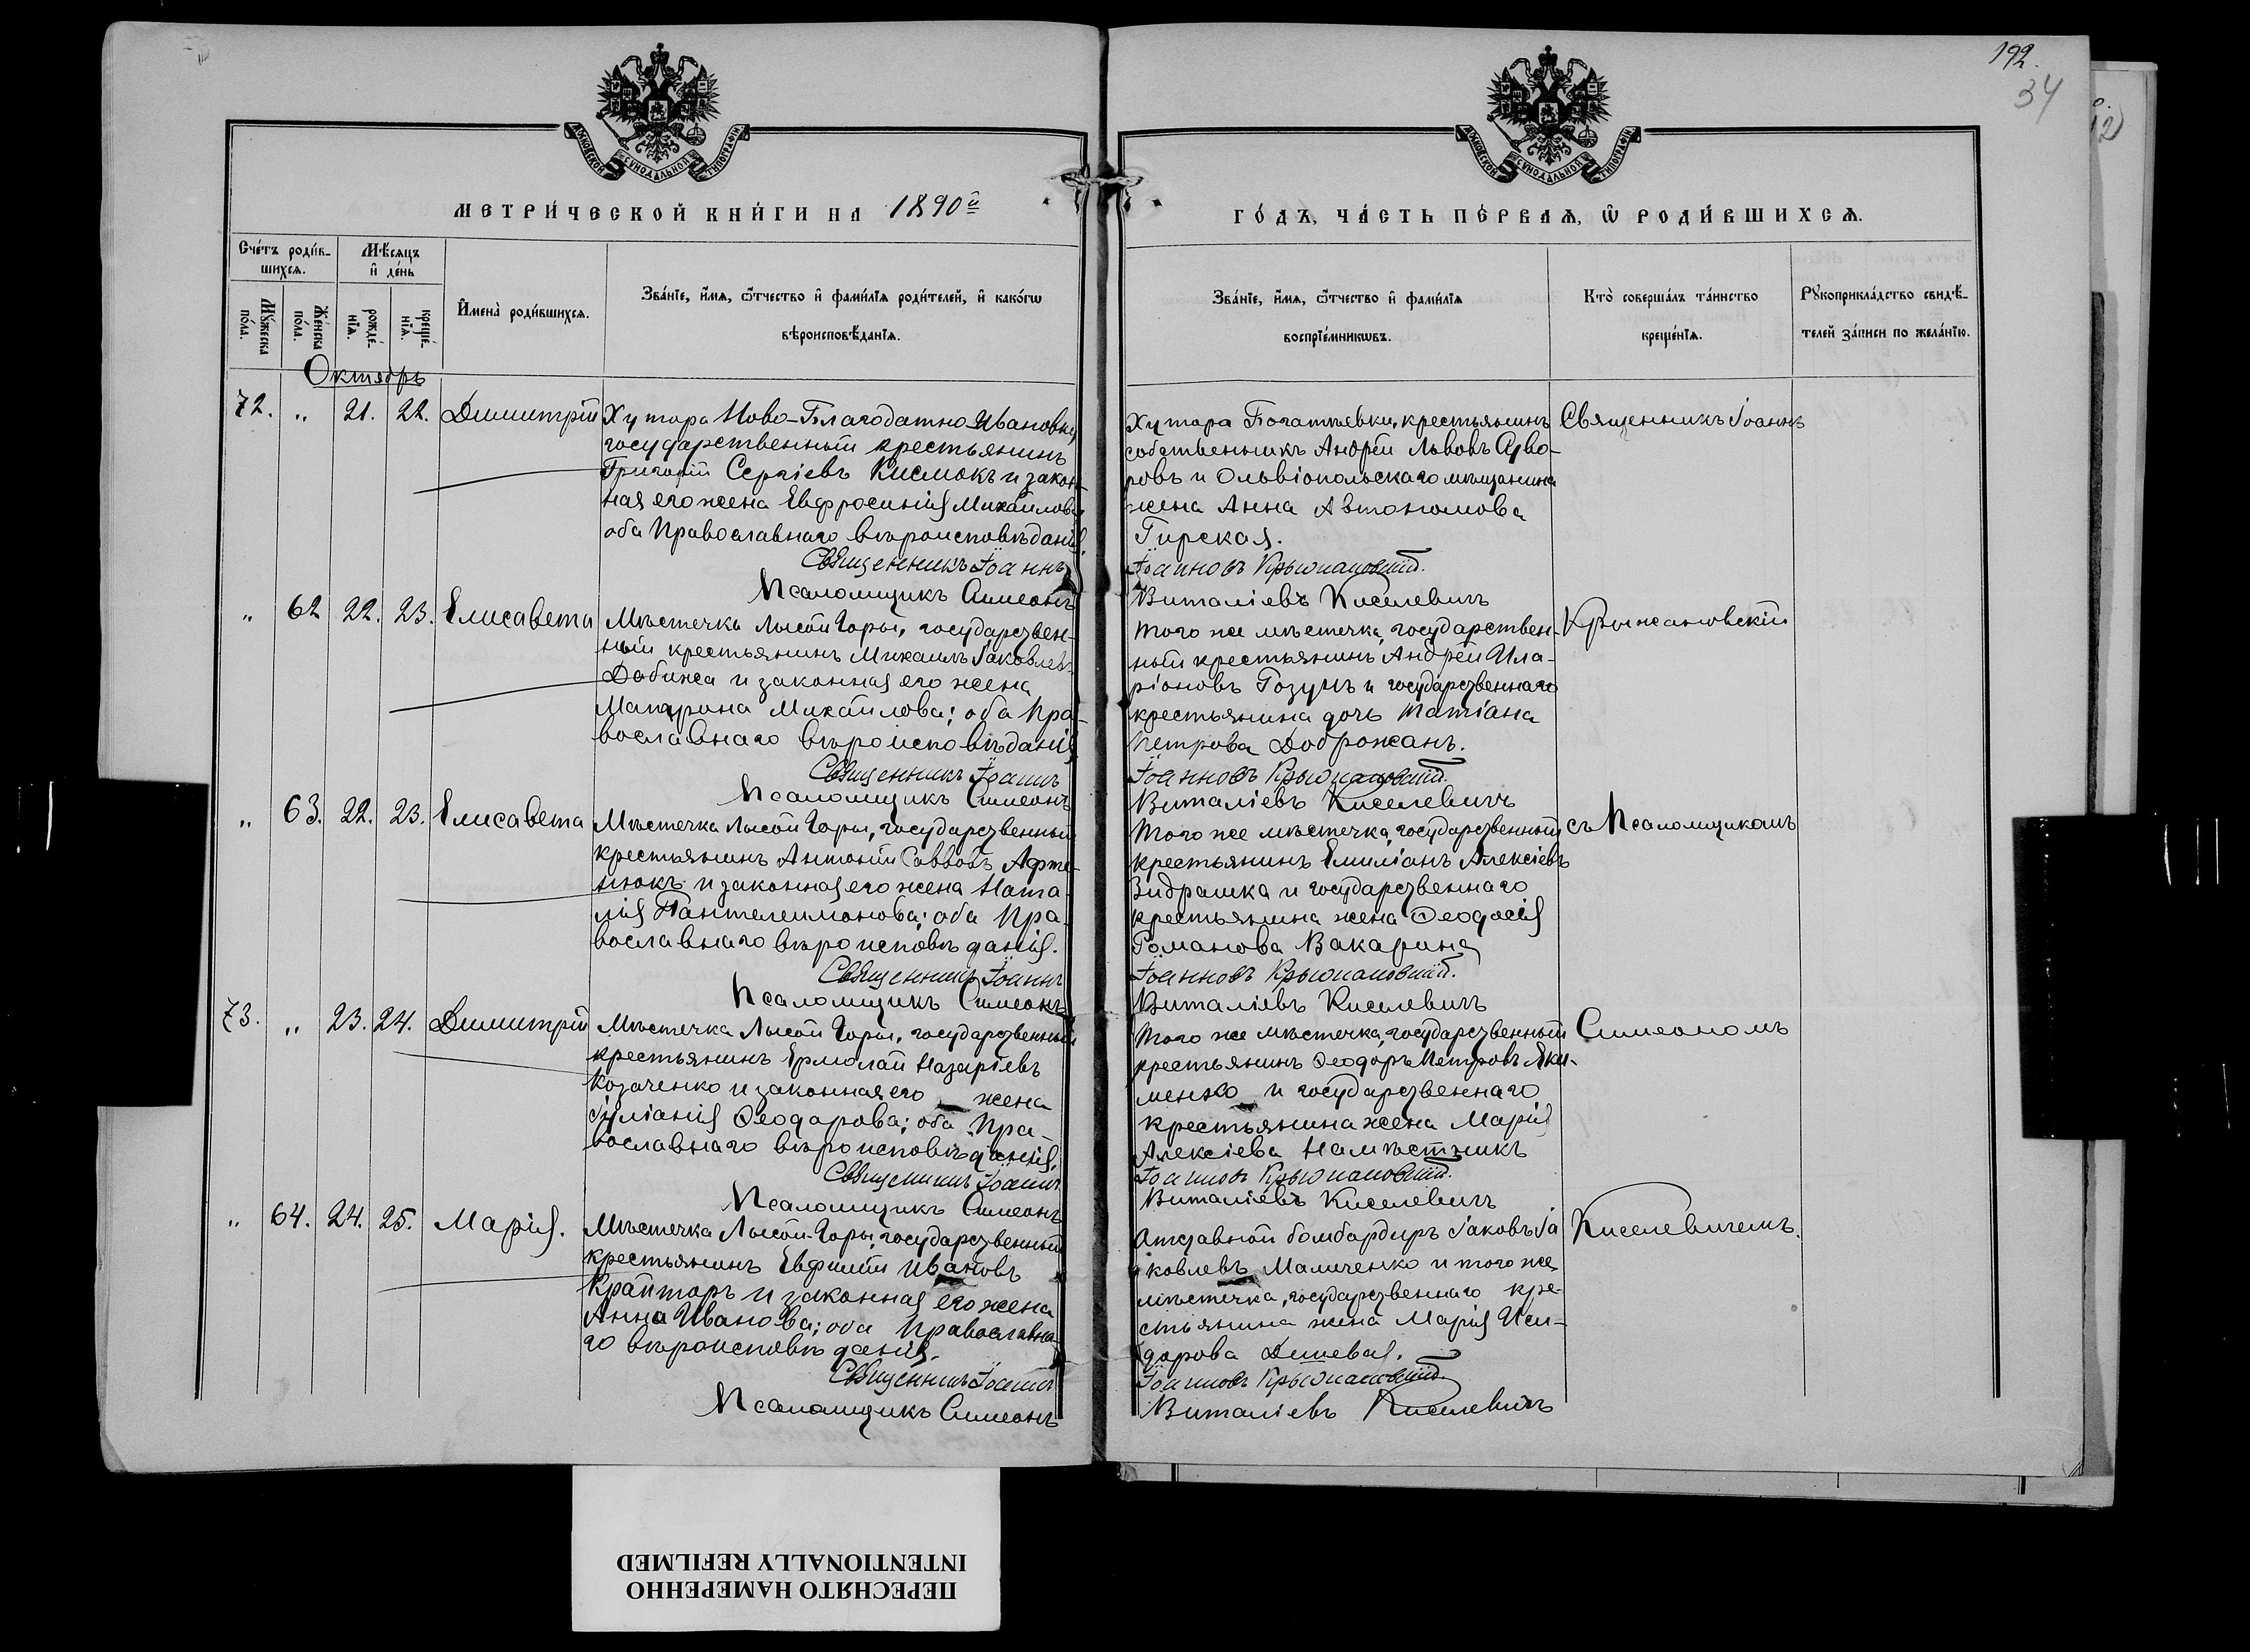 192.
34
МОСКОВСКОЙ СѴНОДАЛЬНОЙ ТИПОГРАФІИ
МОСКОВСКОЙ СѴНОДАЛЬНОЙ ТИПОГРАФІИ
МЕТРИ́ЧЕСКОЙ КНИ́ГИ НА 1890й
ГО́ДЪ, ЧА́СТЬ ПЕ́РВАѦ, Ѿ РОДИ́ВШИХСѦ.
Сче́тъ роди́в-
шихсѧ.
Мѣ́сѧцъ
и҆ де́нь
Мꙋ́жеска
по́ла.
Же́нска
по́ла.
рожде́-
нїѧ.
креще́-
нїѧ.
И҆мена̀ роди́вшихсѧ.
Зва́нїе, и҆́мѧ, ѻ҆́тчество и҆ фами́лїѧ роди́телей, и҆ како́гѡ
вѣроисповѣ́данїѧ.
Зва́нїе, и҆́мѧ, ѻ҆́тчество и҆ фами́лїѧ
воспрїе́мникѡвъ.
Кто̀ соверша́лъ та́инство
креще́нїѧ.
Рꙋкоприкла́дство свидѣ́-
телей за́писи по жела́нїю.
Октябрь
72. „ 21. 22. Димитрій
Хутора Ново-Благодатно-Ивановки
государственный крестьянинъ
Григорій Сергіевъ Кислюкъ и закон-
ная его жена Евфросинія Михайлова,
оба Православнаго вѣроисповѣданія.
Священникъ Іоаннъ
Псаломщикъ Симеонъ
Хутора крестьянинъ
собственникъ Андрей Львовъ Адво-
ровъ и Ольвіопольскаго мѣщанина
жена Анна Автономова
Гирская.
Іоанновъ Крыжановскій.
Виталіевъ Киселевичъ
Священникъ Іоаннъ
„ 62 22. 23. Елисавета
Мѣстечка Лысой Горы, государствен-
ный крестьянинъ Михаилъ Іаковлевъ
Дабижа и законная его жена
Михайлова; оба Пра-
вославнаго вѣроисповѣданія
Священникъ Іоаннъ
Псаломщикъ Симеонъ
Того же мѣстечка, государствен-
ный крестьянинъ Андрей Ила-
ріоновъ Гозунъ и государственнаго
крестьянина дочь Татіана
Петрова Доброжанъ.
Іоанновъ Крыжановскій.
Виталіевъ Киселевичъ
Крыжановскій
„ 63. 22. 23. Елисавета
Мѣстечка Лысой Горы, государственный
крестьянинъ Антоній Саввовъ Афте-
нюкъ и законная его жена Ната-
лія Пантелеимонова; оба Пра-
вославнаго вѣроисповѣданія.
Священникъ Іоаннъ
Псаломщикъ Симеонъ
Того же мѣстечка, государственный
крестьянинъ Емиліанъ Алексіевъ
Видрашка и государственнаго
крестьянина жена Ѳеодосія
Романова Вакарина
Іоанновъ Крыжановскій.
Виталіевъ Киселевичъ
съ Псаломщикомъ
73. „ 23. 24. Димитрій
Мѣстечка Лысой Горы, государственный
крестьянинъ Ермолай Назаріевъ
Козаченко и законная его жена
Іуліанія Ѳеодорова; оба Пра-
вославнаго вѣроисповѣданія.
Священникъ Іоаннъ
Псаломщикъ Симеонъ
Того же мѣстечка, государственный
крестьянинъ Ѳеодоръ Петровъ Яки-
менко и государственнаго
крестьянина жена Марія
Алексіева Намѣстникъ
Іоанновъ Крыжановскій.
Виталіевъ Киселевичъ
Симеономъ
„ 64. 24. 25. Марія.
Мѣстечка Лысой-Горы, государственный
крестьянинъ Евфимій Ивановъ
Крайторъ и законная его жена
Анна Иванова; оба Православна-
го вѣроисповѣданія.
Священникъ Іоаннъ
Псаломщикъ Симеонъ
Отставной бомбардиръ Іаковъ Іа
ковлевъ Маличенко и того же
мѣстечка, государственнаго кре-
стьянина жена Марія Иси-
дорова Дишевая.
Іоанновъ Крыжановскій.
Виталіевъ Киселевичъ
Киселевичемъ.
ПЕРЕСНЯТО НАМЕРЕННО
INTENTIONALLY REFILMED